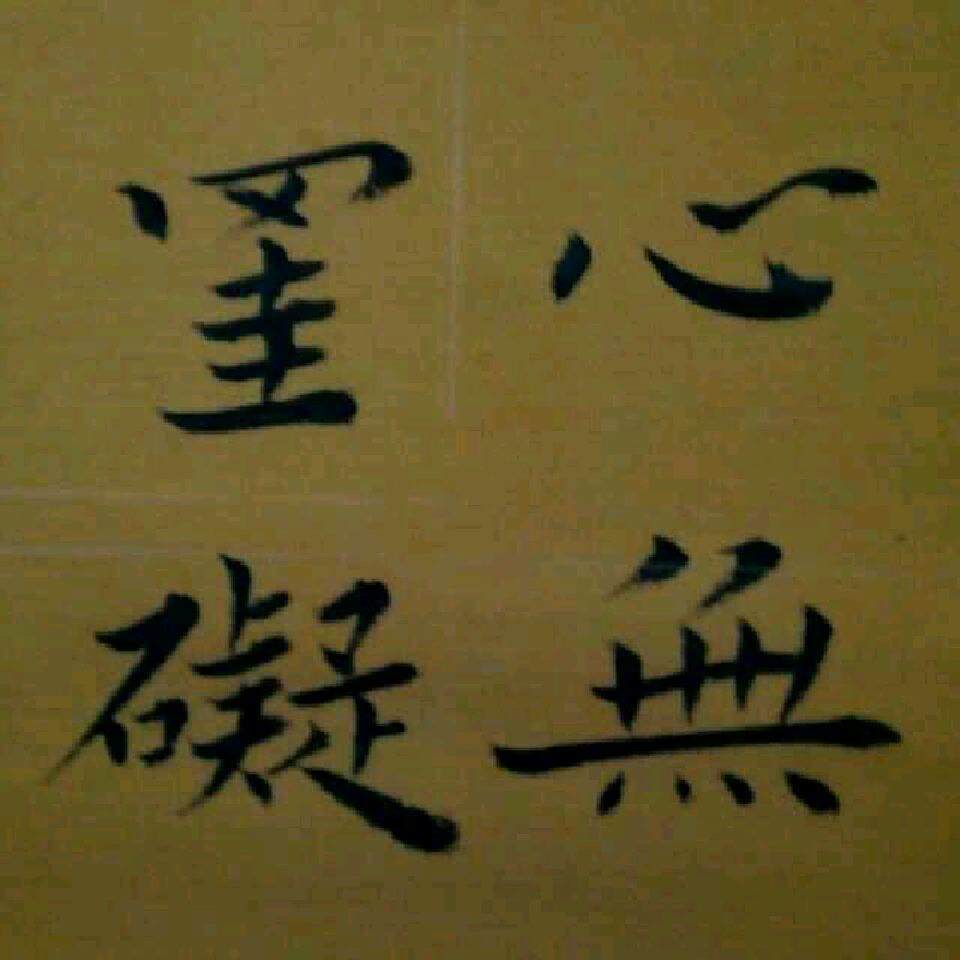 心無
罣礙